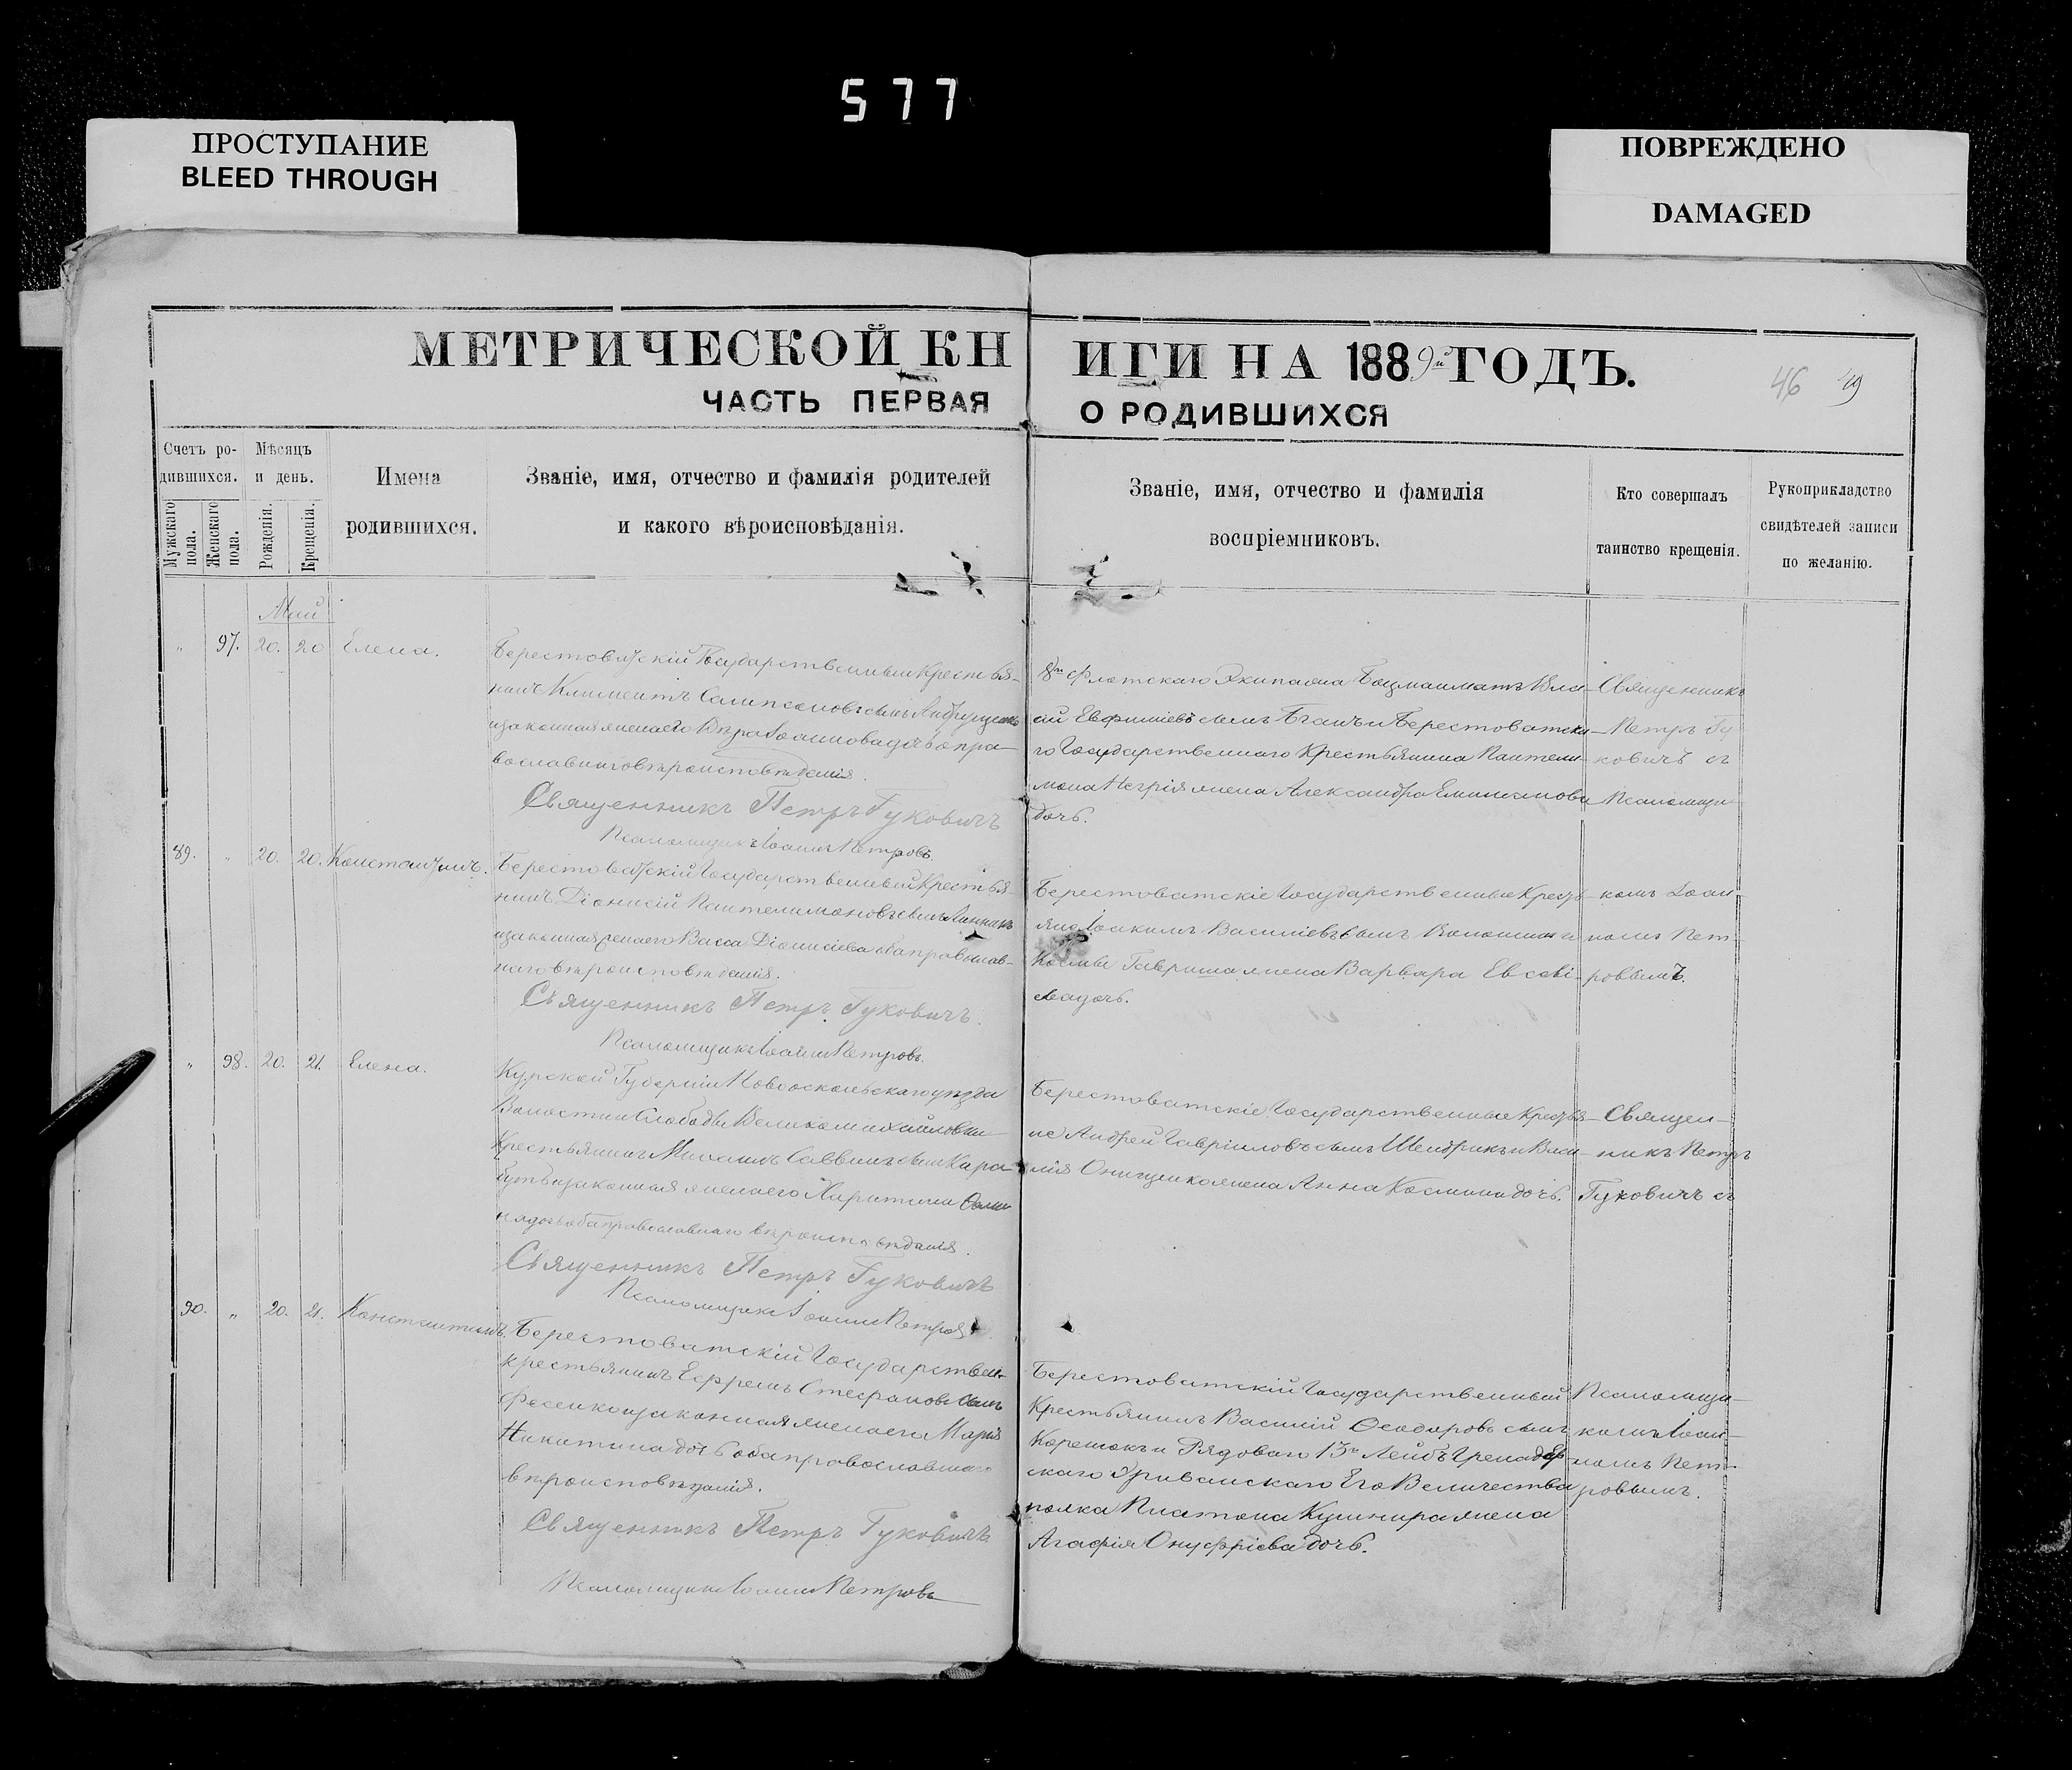 577
ПРОСТУПАНИЕ
BLEED THROUGH
ПОВРЕЖДЕНО
DAMAGED
МЕТРИЧЕСКОЙ КНИГИ НА 1889й ГОДЪ.
46
ЧАСТЬ ПЕРВАЯ О РОДИВШИХСЯ
Счетъ ро-
дившихся.
Мужскаго
пола.
Женскаго
пола.
Мѣсяцъ
и день.
Рожденія.
Крещенія.
Имена
родившихся.
Званіе, имя, отчество и фамилія родителей
и какого вѣроисповѣданія.
Званіе, имя, отчество и фамилія
воспріемниковъ.
Кто совершалъ
таинство крещенія.
Рукоприкладство
свидѣтелей записи
по желанію.
Май
" 97. 20. 20 Елена.
Берестоватскій Государственный Кресть я-
нинъ Климентъ Сампсоновъ сынъ
изаконная жена его Вѣра Іоаннова дочь о пра-
вославнаго вѣроисповѣданія.
Священникъ Петръ Гуковичъ
Псаломщикъ Іоаннъ Петровъ.
8го Флотскаго Экипажа Боцманматъ Васи-
лій Евфиміевъ сынъ и Берестоватска-
го Государственнаго Крестьянина Пантели-
мона жена Александра Емиліанова
дочь.
Священникъ
Петръ Гу-
ковичъ съ
Псаломщи-
89. " 20. 20. Константинъ.
Берестоватскій Государственный Крестья-
нинъ Діонисій Пантелимоновъ сынъ
изаконная жена его Васса Діонисіева оба православ-
наго вѣроисповѣданія.
Священникъ Петръ Гуковичъ.
Псаломщикъ Іоаннъ Петровъ.
Берестоватскіе Государственные Кресть-
яне Іоакимъ Василіевъ сынъ и
Космы жена Варвара Евсеві-
ева дочь.
комъ Іоан-
номъ Пет-
ровымъ.
" 98. 20. 21. Елена.
Курской Губерніи Новооскольскаго уѣзда
Волости и Слободы Великомихайловки
Крестьянинъ Михаилъ Саввинъ сынъ Кара-
изаконная жена его Харитина
дочь оба православнаго вѣроисповѣданія.
Священникъ Петръ Гуковичъ
Псаломщикъ Іоаннъ Петровъ
Берестоватскіе Государственные Крестья-
не Андрей Гавріиловъ сынъ Шендрикъ и Васи-
лія Онищенко жена Анна Космина дочь.
Священ-
никъ Петръ
Гуковичъ съ
90. " 20. 21. Константинъ.
Берестоватскій Государствен.
крестьянинъ Ефремъ Стефановъ сынъ
Фесенко изаконная жена его Марія
Никитина дочь оба православнаго
вѣроисповѣданія.
Священникъ Петръ Гуковичъ.
Псаломщикъ Іоаннъ Петровъ
Берестоватскій Государственный
Крестьянинъ Василій Ѳеодоровъ сынъ
и Рядоваго 13го Лейбъ Гренадер-
скаго Эриванскаго Его Величества
полка Платона Кушнира жена
Агафія Онуфріева дочь.
Псаломщи-
комъ Іоан-
номъ Пет-
ровымъ.